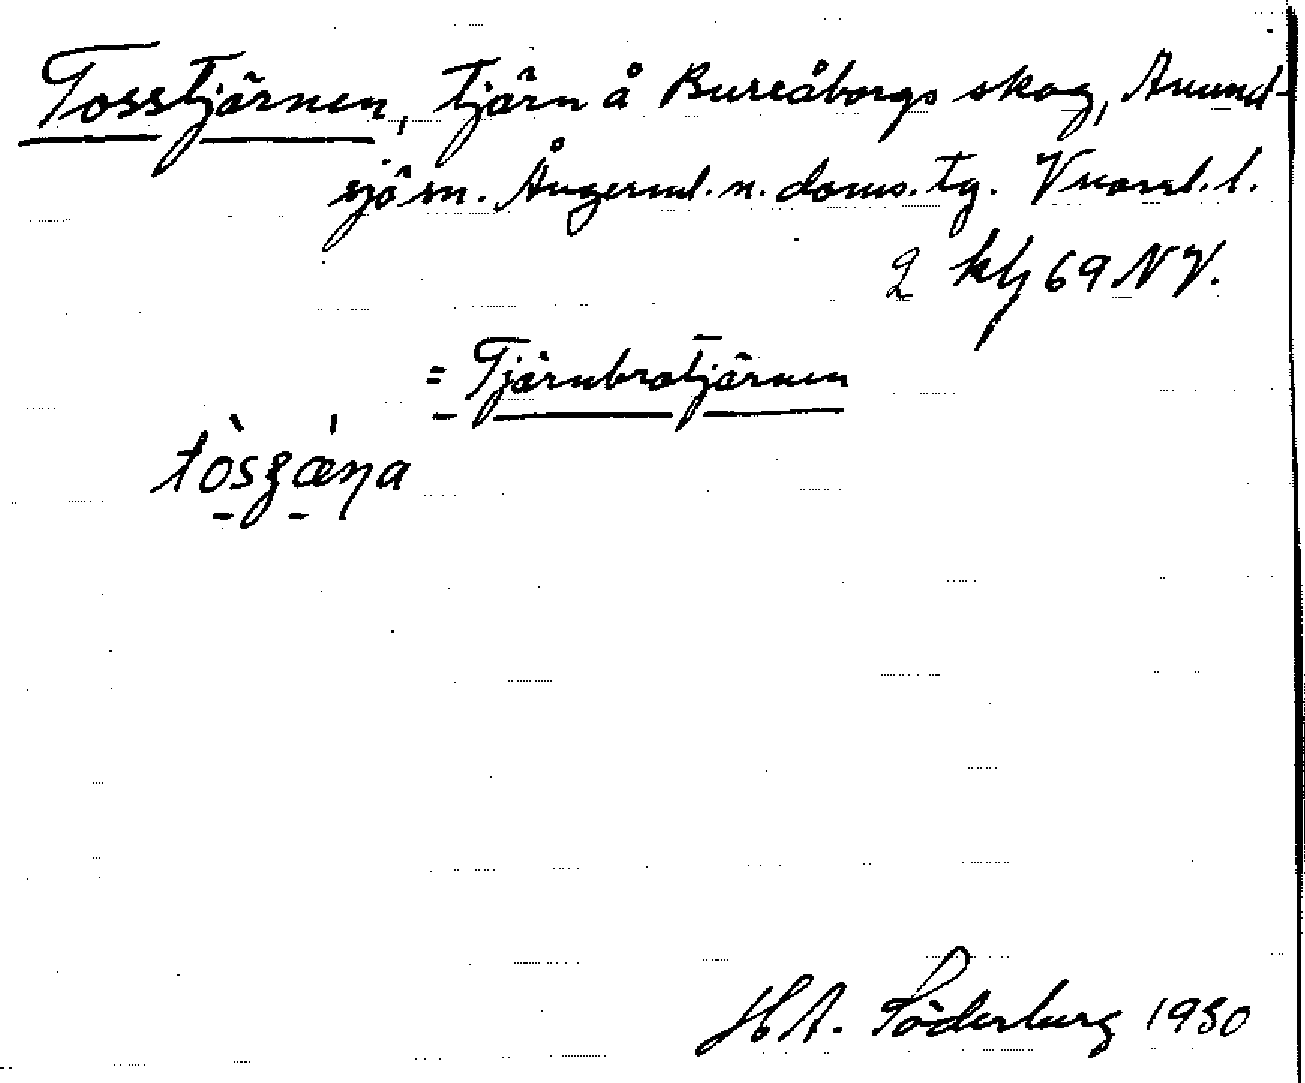 Tosstjärnen, tjärn å Bureåborgs skog, Anund-
sjö sn. Ångerml. n. doms. tg. Vnorrl. l.
2 kbl 69 NV.
= Tjärnbrotjärnen
H A. Söderberg 1930